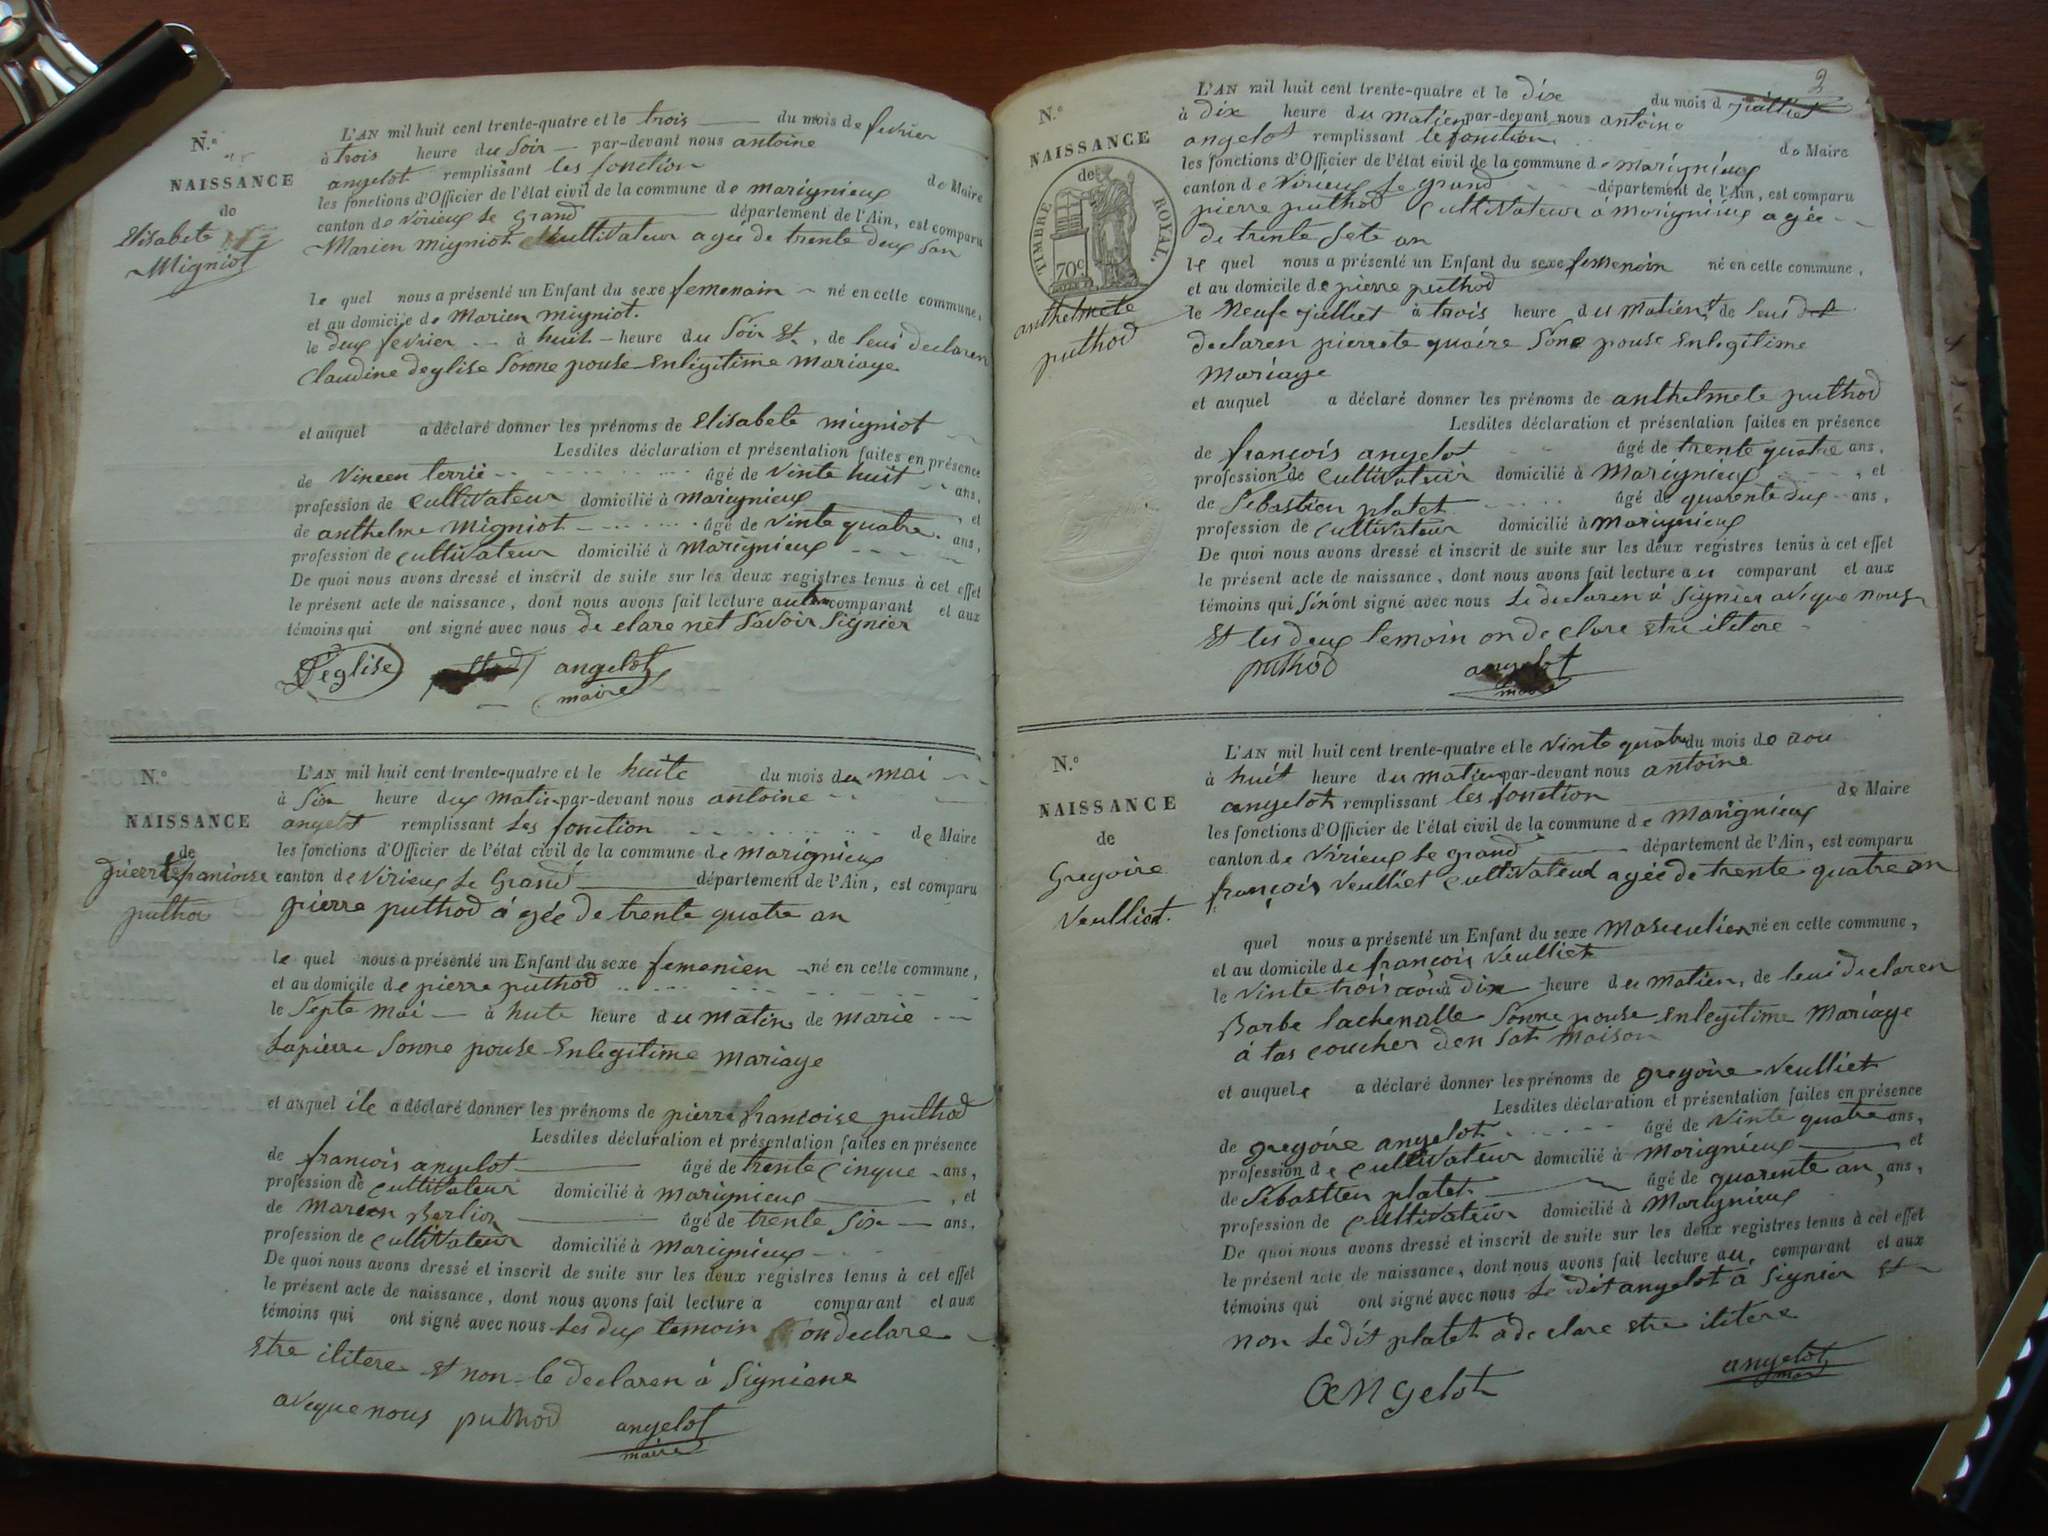 N.º
NAISSANCE
de
Elisabete
Migniot
L'AN mil huit cent trente-quatre et le trois du mois de fevrier
à trois heure du Soir par-devant nous antoine
angelot remplissant les fonction
de Maire
les fonctions d'Officier de l'état civil de la commune de marignieux
canton de Virieux Le grand département de l'Ain, est comparu
Marien migniot cultivateur agée de trente deux San
le quel nous a présenté un Enfant du sexe femenain né en cette commune,
et au domicile de Marien migniot.
le deux fevrier à huit heure du Soir et, de leui declaren
Claudine deglise Sonne pouse Enligitime Mariage
et auquel a déclaré donner les prénoms de Elisabete migniot
Lesdites déclaration et présentation faites en présence
de Vincen terrie âgé de Vinte huit ans,
profession de Cultivateur domicilié à marignieux, et
de anthelme Migniot âgé de Vinte quatre ans,
profession de cultivateur domicilié à Marignieux
De quoi nous avons dressé et inscrit de suite sur les deux registres tenus à cet effet
le présent acte de naissance, dont nous avons fait lecture au comparant et aux
témoins qui ont signé avec nous de clare net Savoir Signier
Deglise angelot
maire
N.º
NAISSANCE
de
pierrefrancoise
puthod
L'AN mil huit cent trente-quatre et le huite du mois deu mai
à Six heure dux Matin par-devant nous antoine
angelot remplissant Les fonction de Maire
les fonctions d'Officier de l'état civil de la commune de marignieux
canton de Virieux Le Grand département de l'Ain, est comparu
pierre puthod á gée de trente quatre an
le quel nous a présenté un Enfant du sexe femenien né en cette commune,
et au domicile de pierre puthod
le Septe mai à hute heure du matin de marie
Lapierre Sonne pouse Enlegitime mariage
et auquel ile a déclaré donner les prénoms de pierre francoise puthod
Lesdites déclaration et présentation faites en présence
de francois angelot âgé de trente cinque ans,
profession de cultivateur domicilié à marignieux, et
de Marien Berlioz âgé de trente Six ans,
profession de cultivateur domicilié à marignieux
De quoi nous avons dressé et inscrit de suite sur les deux registres tenus à cet effet
le présent acte de naissance, dont nous avons fait lecture a comparant et aux
témoins qui ont signé avec nous Les dux temoin on declare
Etre ilitere et non le declaren á Signiene
avequenous puthod angelot
maire
2
N.º
NAISSANCE
de
TIMBRE ROYAL.
70c
anthelmete
puthod
L'AN mil huit cent trente-quatre et le dixe du mois d juilliet
à dix heure du matien par-devant nous antoine
angelot remplissant le fonction de Maire
les fonctions d'Officier de l'état civil de la commune de marignieux
canton de Virieux Le grand département de l'Ain, est comparu
pierre puthod cultivateur á Marignieux agée
de trente Sete an
le quel nous a présenté un Enfant du sexe femenein né en cette commune,
et au domicile de pierre puthod
le Neufe juilliet à trois heure du Matien et de leui del
declaren pierrete quaire Sone pouse Enlegitime
Mariage
et auquel a déclaré donner les prénoms de anthelmete puthod
Lesdites déclaration et présentation faites en présence
de françois angelot âgé de trente quatre ans,
profession de cultivateur domicilié à Marignieux, et
de Sebastien platet âgé de quarente dux ans,
profession de cultivateur domicilié à Marignieux
De quoi nous avons dressé et inscrit de suite sur les deux registres tenus à cet effet
le présent acte de naissance, dont nous avons fait lecture au comparant et aux
témoins qui ont signé avec nous Le declaren á Signier aveque nous
Et les deux temoin on de clare etre ilitere
puthod angelot
maire
N.º
NAISSANCE
de
Gregoire
Veulliet.
L'AN mil huit cent trente-quatre et le Vinte quatre du mois de aou
à huit heure du matien par-devant nous antoine
angelot remplissant les fonction de Maire
les fonctions d'Officier de l'état civil de la commune de Marignieux
canton de Virieux Le grand département de l'Ain, est comparu
françois Veulliet cultivateur agée de trente quatre an
quel nous a présenté un Enfant du sexe Masculien né en cette commune,
et au domicile de françois Veulliet
le Vinte trois aou à dix heure deu matien, de leui declaren
Barbe lachenalle Sonne pouse Enlegitime Mariage
á tas coucher den Sat Maison
et auquele a déclaré donner les prénoms de gregoire Veulliet
Lesdites déclaration et présentation faites en présence
de gregoire angelot âgé de Vinte quatre ans,
profession de cultivateur domicilié à Marignieux, et
de Sebastien platet âgé de quarente an, ans,
profession de cultivateur domicilié à Marignieux
De quoi nous avons dressé et inscrit de suite sur les deux registres tenus à cet effet
le présent acte de naissance, dont nous avons fait lecture au comparant et aux
témoins qui ont signé avec nous Le dit angelot á Signier Et
non Le dit platet a de clare etre ilitere
angelot
angelot
maire